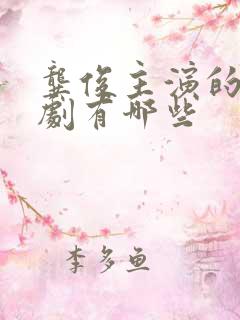 龔俊主演的
劇有哪些
李多鱼